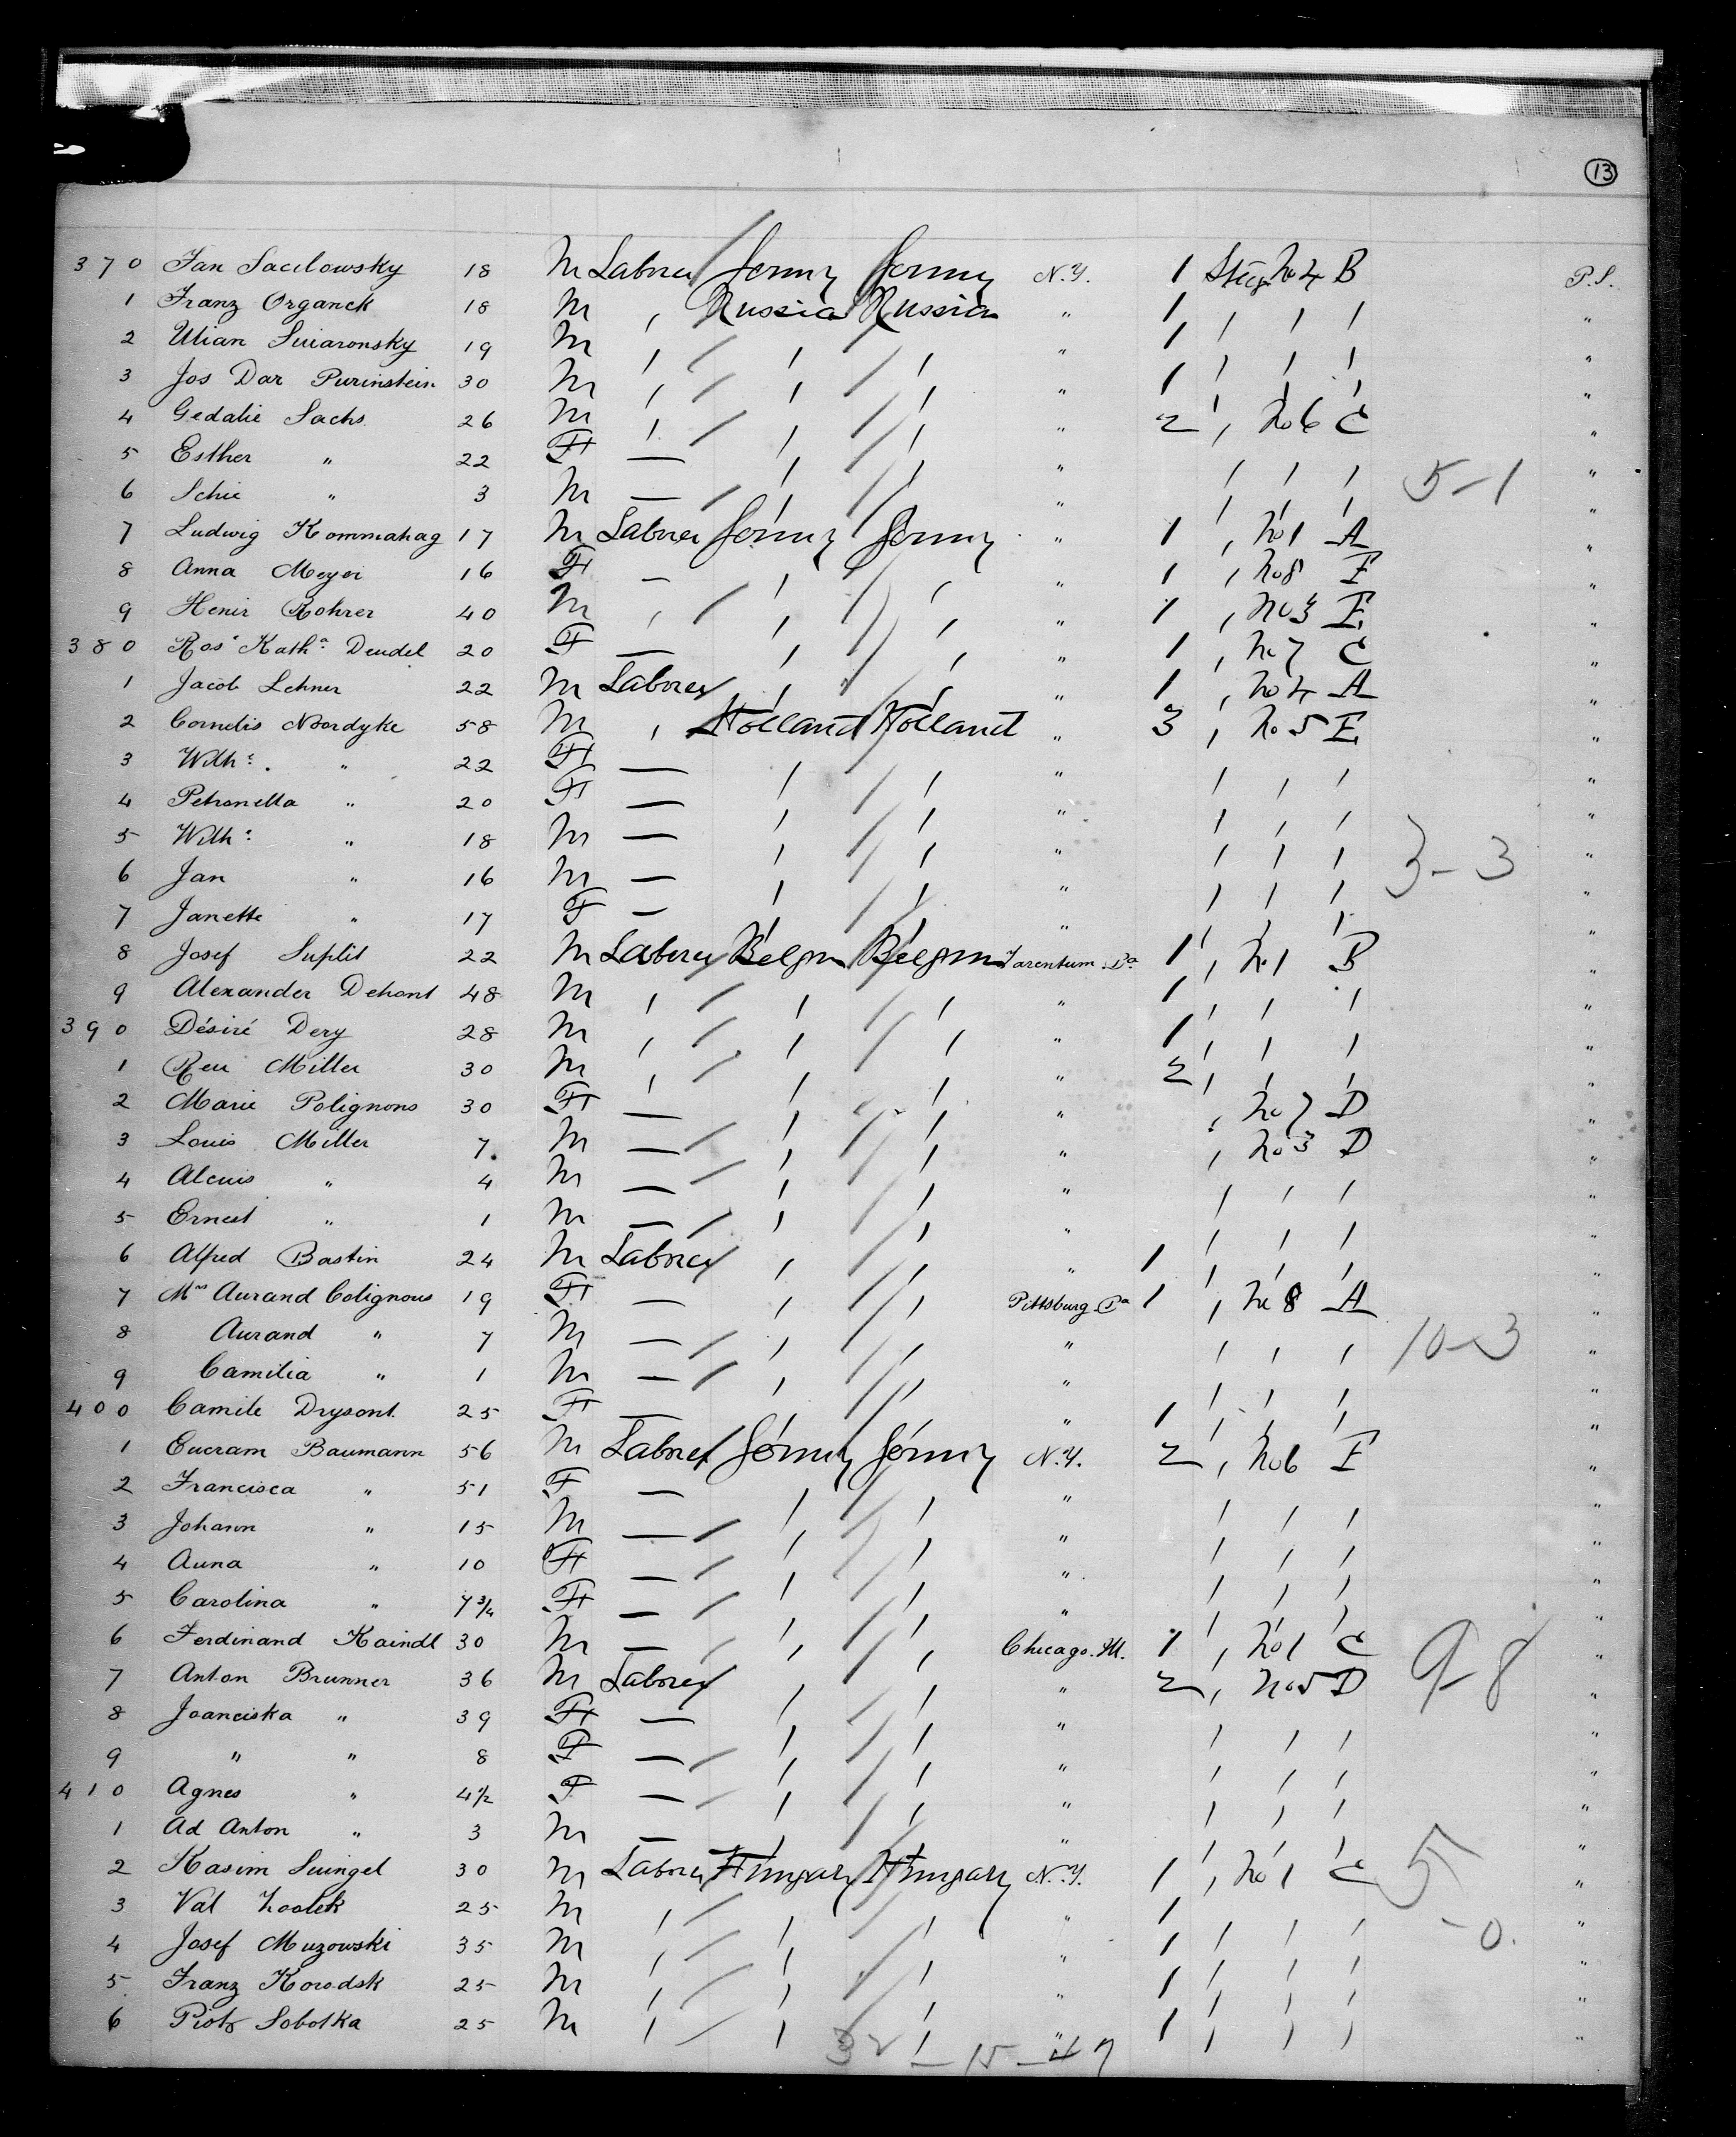 13
370 Jan Sacilowsky 18 M Laborer Germy Germy N.Y. 1 Steg No 4 B P.S.
1 Franz Organek 18 M , Russia Russia " 1 / / / "
2 Ulian Suiaronsky 19 M / / / " 1 / / / "
3 Jos Dar Purinstein 30 M / / / " 1 / / / "
4 Gedalie Sachs. 26 M / / / " 2 , No 6 C "
5 Esther " 22 F — / / " / / / "
5-1
6 Schie " 3 M — / / " / / / "
7 Ludwig Kommahag 17 M Laborer Germy Germy " 1 , No 1 A "
8 Anna Meyer 16 F — / / " 1 , No 8 E "
9 Henir Rohrer 40 M , / / " 1 , No 3 E "
380 Ros Kath a Deudel 20 F — / / " 1 , No 7 C "
1 Jacob Lehner 22 M Laborer / / " 1 , No 4 A "
2 Cornelis Noordyke 58 M , Holland Holland " 3 , No 5 E "
3 Wilh e. " 22 F — / / " / / / "
4 Petronella " 20 F — / / " / / / "
5 Wilh e " 18 M — / / " / / / "
3-3
6 Jan " 16 M — / / " / / / "
7 Janette " 17 F — / / " / / / "
8 Josef Suplit 22 M Laborer Belgm Belgm Tarentum Pa 1 , No 1 B "
9 Alexander Dehont 48 M / / / " 1 / / / "
390 Désiré Dery 28 M / / / " 1 / / / "
1 Reu Miller 30 M / / / " 2 / / / "
2 Marie Polignons 30 F — / / " , No 7 D "
3 Louis Miller 7 M — / / " , No 3 D "
4 Alcuis " 4 M — / / " / / / "
5 Ernest " 1 M — / / " / / / "
6 Alfred Bastin 24 M Laborer / / " 1 / / / "
7 Mrs Aurand Colignous 19 F — / / Pittsburg Pa 1 , No 8 A "
8 Aurand " 7 M — / / " / / / "
10-3
9 Camilia " 1 M — / / " / / / "
400 Camile Drysont 25 F — / / " 1 / / / "
1 Eucram Baumann 56 M Laborer Germy Germy N.Y. 2 , No 6 E "
2 Francisca " 51 F — / / " / / / "
3 Johann " 15 M — / / " / / / "
4 Auna " 10 F — / / " / / / "
5 Carolina " 7 3/4 F — / / " / / / "
6 Ferdinand Kaindl 30 M — / / Chicago. Ill. 1 , No 1 C "
9-8
7 Anton Brunner 36 M Laborer / / " 2 , No 5 D "
8 Joanciska " 39 F — / / " / / / "
9 " " 8 F — / / " / / / "
410 Agnes " 4 1/2 F — / / " / / / "
1 Ad Anton " 3 M — / / " / / / "
2 Kasim Suingel 30 M Laborer Hungary Hungary N.Y. 1 , No 1 C "
5-0.
3 Val Zoolek 25 M / / / " 1 / / / "
4 Josef Muzowski 35 M / / / " 1 / / / "
5 Franz Korodsk 25 M / / / " 1 / / / "
6 Piotr Sobotka 25 M / / / " 1 / / / "
32 — 15 — 47